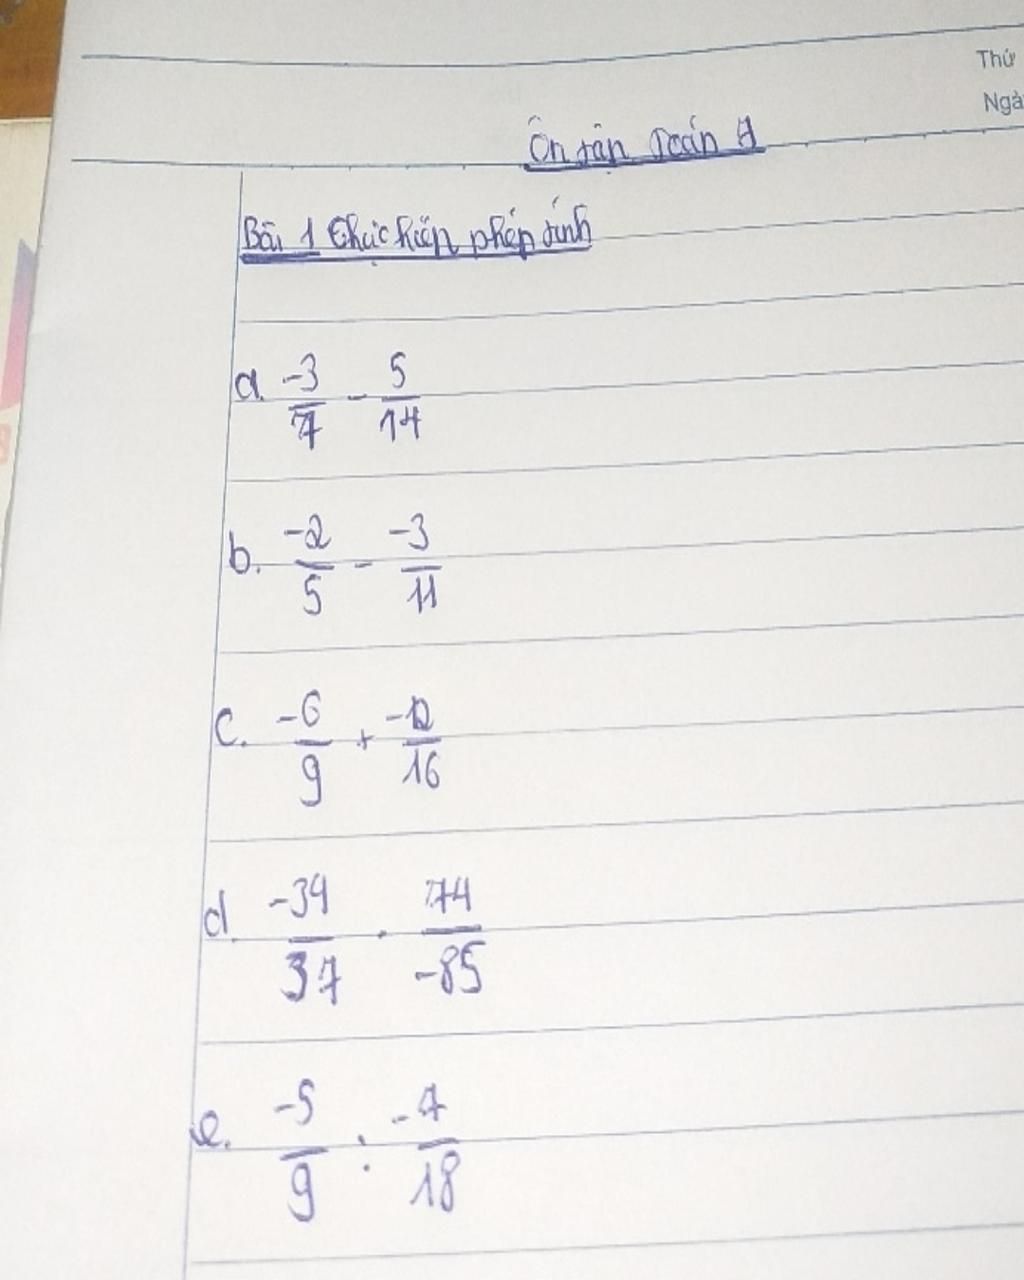 Thứ
Ngà
Ôn tập Toán 7
Bài 1 Thực hiện phép tính
a. -3/7 - 5/14
b. -2/5 - -3/11
c. -6/9 + -12/16
d. -34/37 . 74/-85
e. -5/9 : -7/18